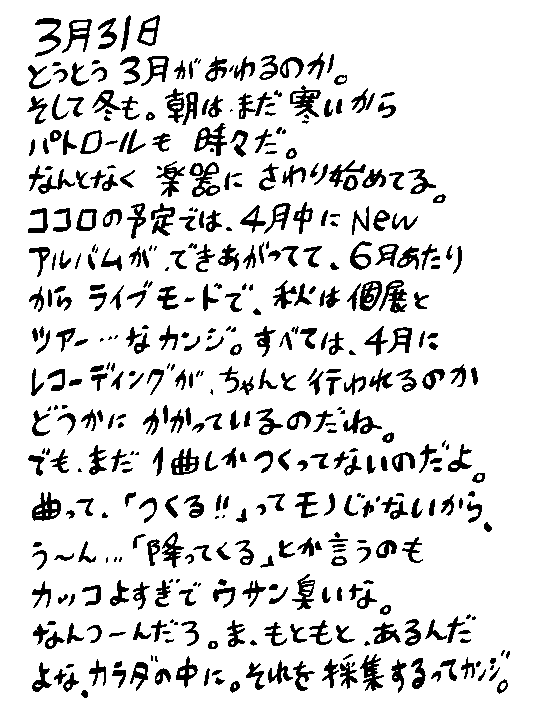 3月31日
とうとう 3月がおわるのか。
そして冬も。朝は、まだ寒いから
パトロールも 時々だ。
なんとなく 楽器に さわり始めてる。
ココロの予定では、4月中に New
アルバムが、できあがってて、6月あたり
から ライブモードで、秋は個展と
ツアー…なカンジ。すべては、4月に
レコーディングが、ちゃんと行われるのか
どうかに かかっているのだね。
でも、まだ 1曲しかつくってないのだよ。
曲って、「つくる!!」ってモノじゃないから、
う〜ん…「降ってくる」とか言うのも
カッコよすぎで ウサン臭いな。
なんつーんだろ。ま、もともと、あるんだ
よな、カラダの中に。それを採集するってカンジ。